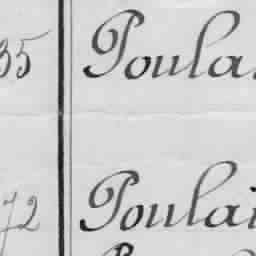 35 Poula
72 Poulai